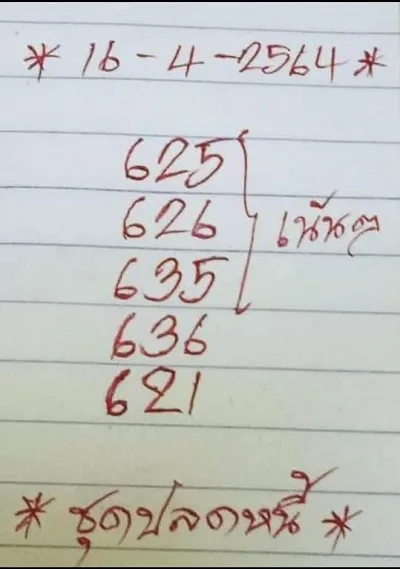 * 16 - 4 - 2564 *
625
626 เน้นๆ
635
636
621
* ชุดปลดหนี้ *